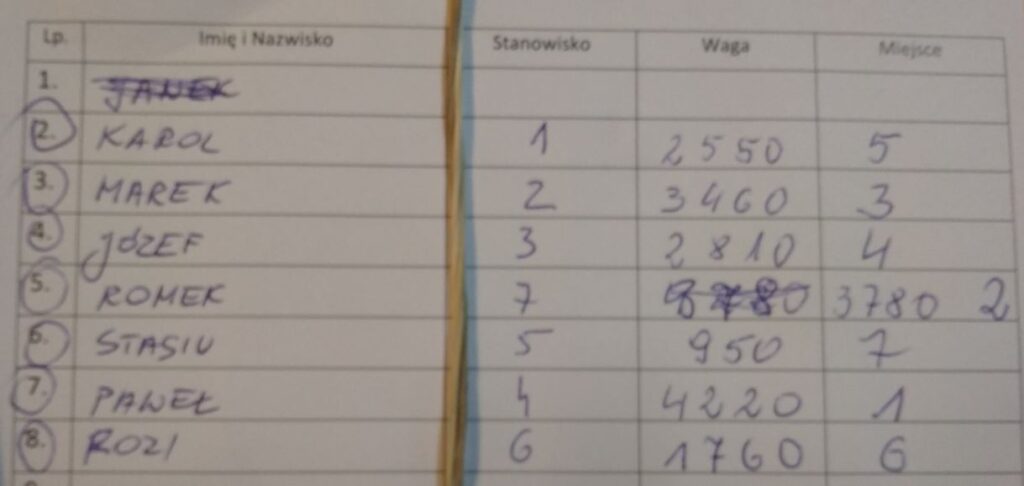 Lp. Imię i Nazwisko Stanowisko Waga Miejsce
1. JANEK
2. KAROL 1 2550 5
3. MAREK 2 3460 3
4. JÓZEF 3 2810 4
5. ROMEK 7 8780 3780 2
6. STASIU 5 950 7
7. PAWEŁ 4 4220 1
8. ROZI 6 1760 6